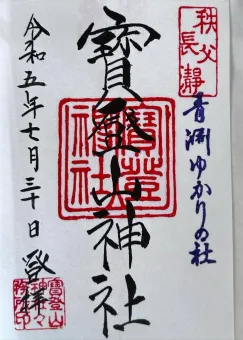 秩父
長瀞
青淵ゆかりの社
寳登山神社
寶登山
神社
令和五年七月三十日 登拝
寶登山
神社々
務所印